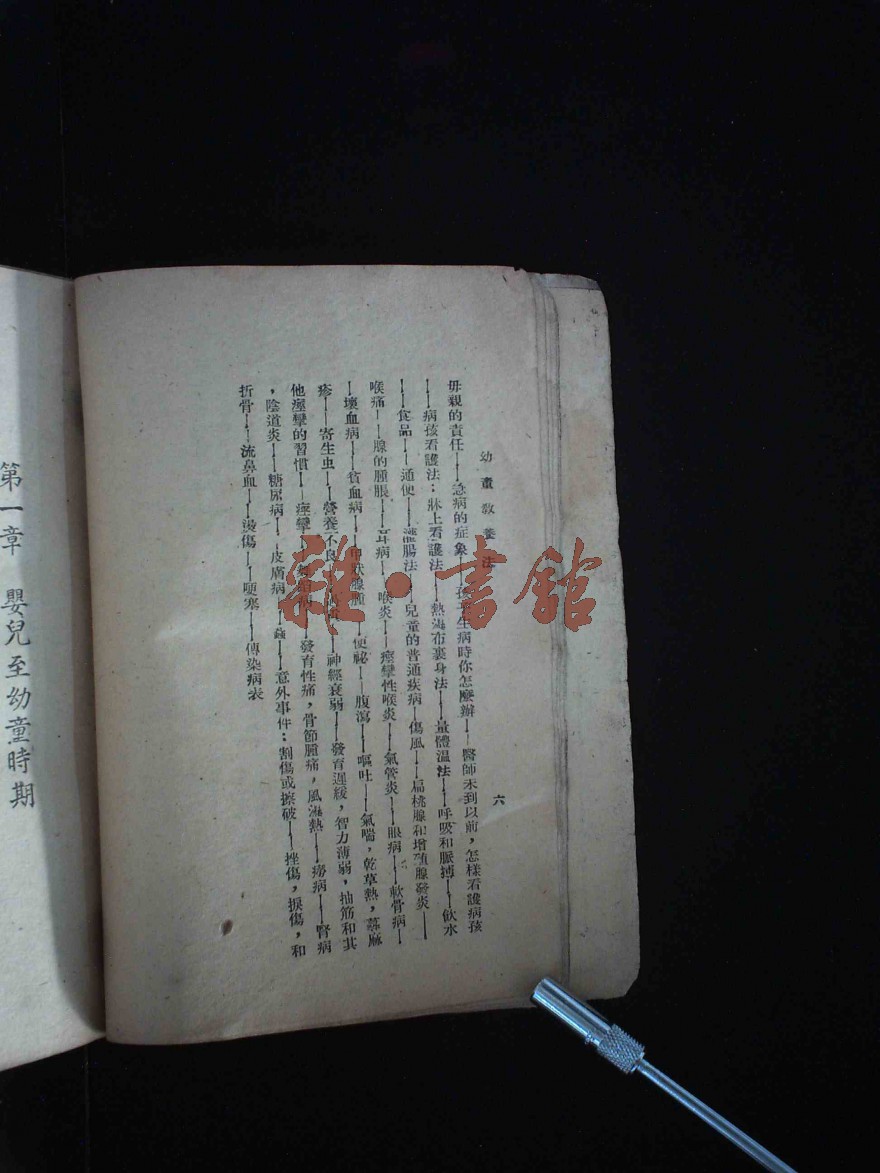 幼童教養法
六
母親的責任——急病的症象——孩子生病時你怎麽辦——醫師未到以前，怎樣看護病孩
——病孩看護法：牀上看護法——熱濕布裹身法——量體溫法——呼吸和脈搏——飲水
——食品——通便——灌腸法——兒童的普通疾病——傷風——扁桃腺和增殖腺發炎——
喉痛——腺的腫脹——耳病——喉炎——痙攣性喉炎——氣管炎——眼病——軟骨病—
—壞血病——貧血病——甲狀腺腫——便祕——腹瀉——嘔吐——氣喘，乾草熱，蕁麻
疹——寄生虫——營養不良——神經衰弱——發育遲緩，智力薄弱，抽筋和其
他痙攣的習慣——痙攣——發育性痛，骨節腫痛，風濕熱——癆病——腎病
，陰道炎——糖尿病——皮膚病——蝨——意外事件：割傷或擦破——挫傷，捩傷，和
折骨——流鼻血——燙傷——哽塞——傳染病表
第一章 嬰兒至幼童時期
雜·書館